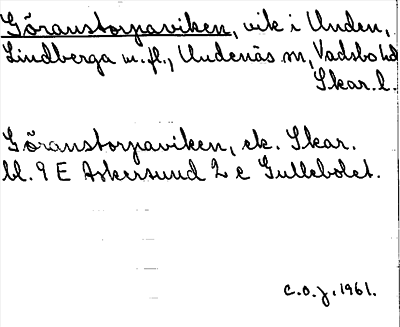 Göranstorpaviken, vik i Unden,
Lindberga m.fl., Undenäs sn, Vadsbo hd
Skar. l.
Göranstorpaviken, ek. Skar.
bl. 9 E Askersund 2 e Gullebolet.
C.O.J. 1961.